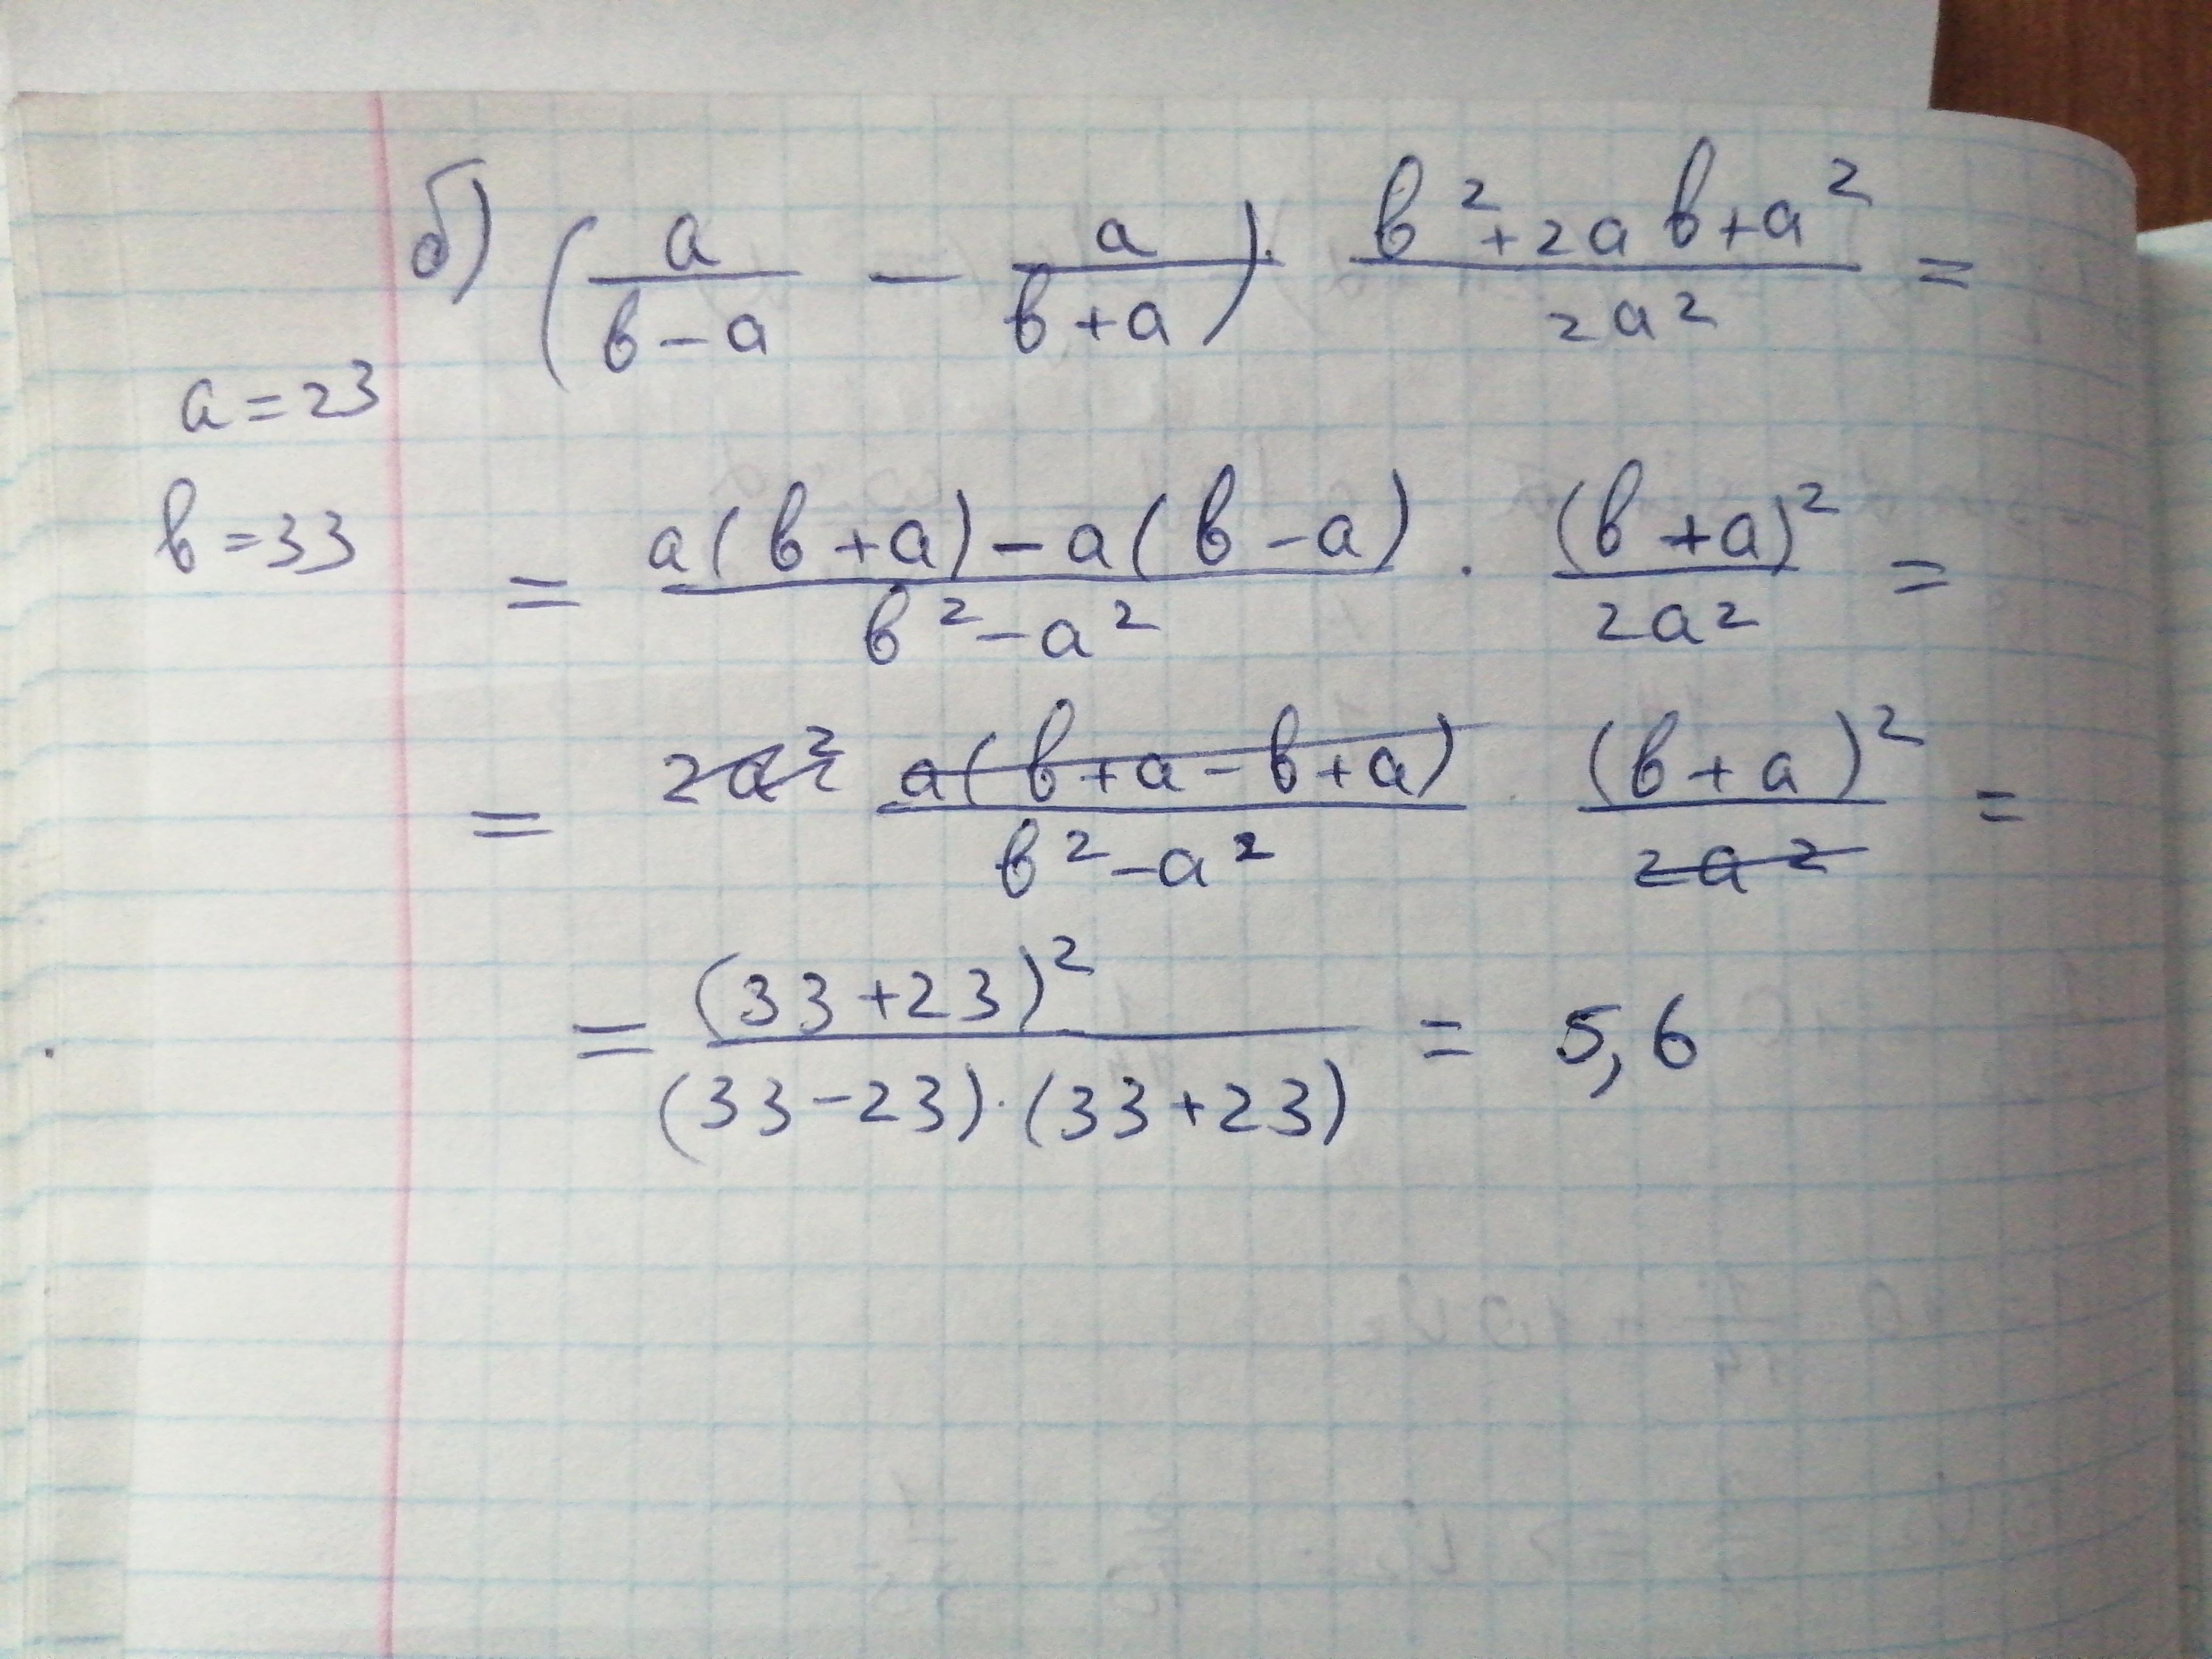 б) (a/(b-a) - a/(b+a)) · (b²+2ab+a²)/(2a²) =
a=23
b=33
= (a(b+a)-a(b-a))/(b²-a²) · (b+a)²/(2a²) =
= 2a² a(b+a-b+a)/(b²-a²) · (b+a)²/(2a²) =
= (33+23)²/((33-23)·(33+23)) = 5,6